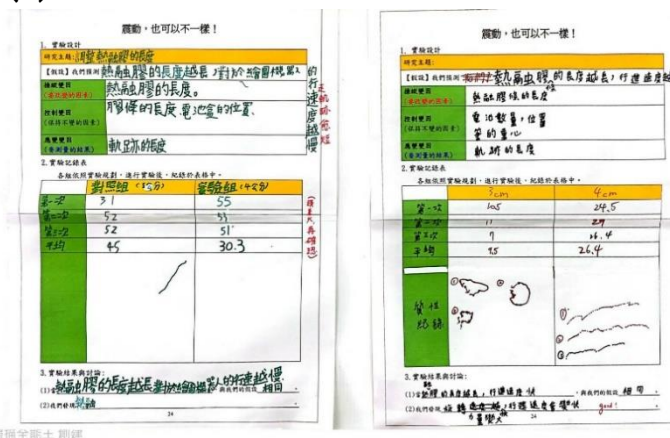 震動，也可以不一樣！
1. 實驗設計
研究主題: 調整熱融膠的長度
【假設】我們預測 熱融膠的長度越長，對於繪圖機器人的行走速度越慢
操縱變因
(要改變的因素)
熱融膠的長度。
控制變因
(保持不變的因素)
膠條的長度 電池盒的位置
應變變因
(要測量的結果)
軌跡的長度
2. 實驗記錄表
各組依照實驗規劃，進行實驗後，紀錄於表格中。
對照組 實驗組
第一次 31 55
第二次 52
第三次 52 51
平均 45 30.3
3. 實驗結果與討論:
(1)當 熱融膠的長度越長 對於繪圖機器人的行走越慢 ，與我們的假設 相同
(2)我們發現
24
震動，也可以不一樣！
1. 實驗設計
研究主題:
【假設】我們預測 熱融膠的長度越長，行進速度越
操縱變因
(要改變的因素)
熱融膠條的長度
控制變因
(保持不變的因素)
電池數量，位置
筆的重心
應變變因
(要測量的結果)
軌跡的長度
2. 實驗記錄表
各組依照實驗規劃，進行實驗後，紀錄於表格中。
3cm 4cm
第一次 10.5 24.5
第二次 11 29
第三次 7 26.4
平均 9.5 26.4
質性
紀錄
① ② ③
① ② ③
3. 實驗結果與討論:
(1)當 熱膠的長度越長，行進速度快 ，與我們的假設 相同 。
(2)我們發現 行進速度會變快 good!
力量變大
24